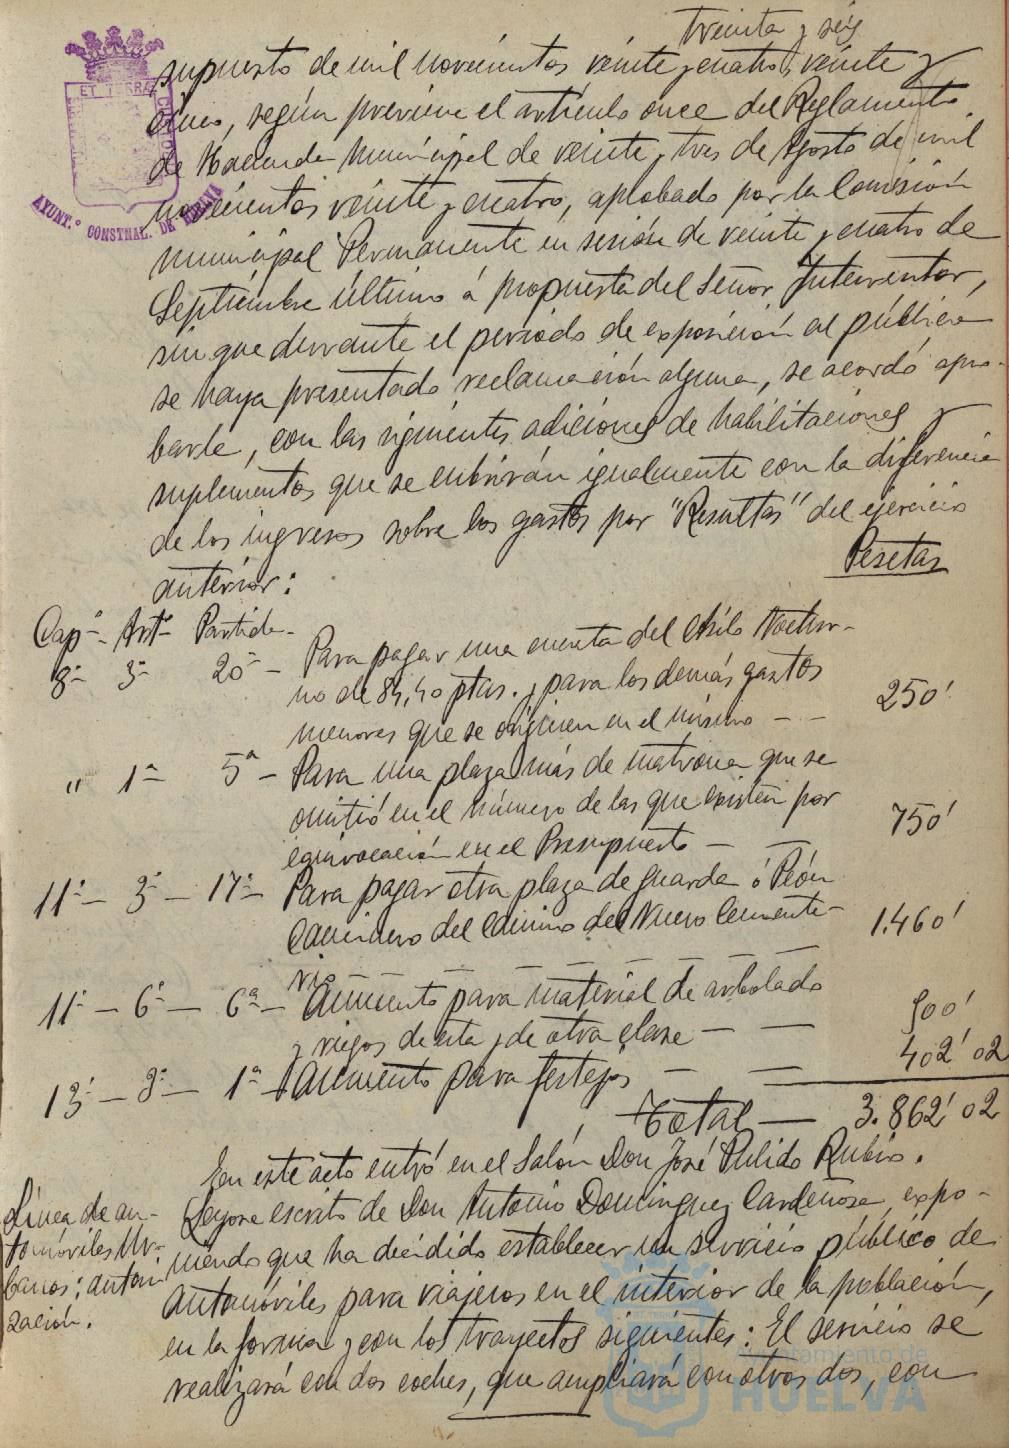 treinta y seis
supuesto de mil novecientos veinte y cuatro, veinte y
cinco, según previene el artículo once del Reglamento
de Hacienda Municipal de veinte y tres de Agosto de mil
novecientos veinte y cuatro, aprobado por la Comisión
municipal Permanente en sesión de veinte y cuatro de
Septiembre último á propuesta del Señor Interventor,
sin que durante el periodo de exposición al público
se haya presentado reclamación alguna, se acordó apro-
barle, con las siguientes adiciones de habilitaciones y
suplementos que se cubrirán igualmente con la diferencia
de los ingresos sobre los gastos por "Resultas" del ejercicio
anterior:
Pesetas
Capº- Artº- Partida-
8º- 3º- 20º- Para pagar una cuenta del Asilo Noctur-
no de 84,40 ptas. y para los demás gastos
menores que se originen en el mismo - - 250'
" 1º- 5ª- Para una plaza más de matrona que se
omitió en el número de las que existen por
equivocación en el Presupuesto - - 750'
11º- 3º- 17º- Para pagar otra plaza de guarda ó Peón
Caminero del Camino del Nuevo Cemente-
rio - - - - - - 1.460'
11º- 6º- 6ª- Aumento para material de arbolado
y riegos de esta y de otra clase - - 900'
13º- 3º- 1ª- Aumento para festejos - - 402'02
Total - 3.862'02
En este acto entró en el Salón Don José Pulido Rubio.
Línea de au-
tomóviles Ur-
banos; autori
zación.
Leyose escrito de Don Antonio Dominguez Cardeñosa, expo-
niendo que ha decidido establecer un servicio público de
Automóviles para viajeros en el interior de la población,
en la forma y con los trayectos siguientes: El servicio se
realizará con dos coches, que ampliará con otros dos, con
ET TERRAE
AYUNT.º CONSTNAL. DE HUELVA
Ayuntamiento de
HUELVA